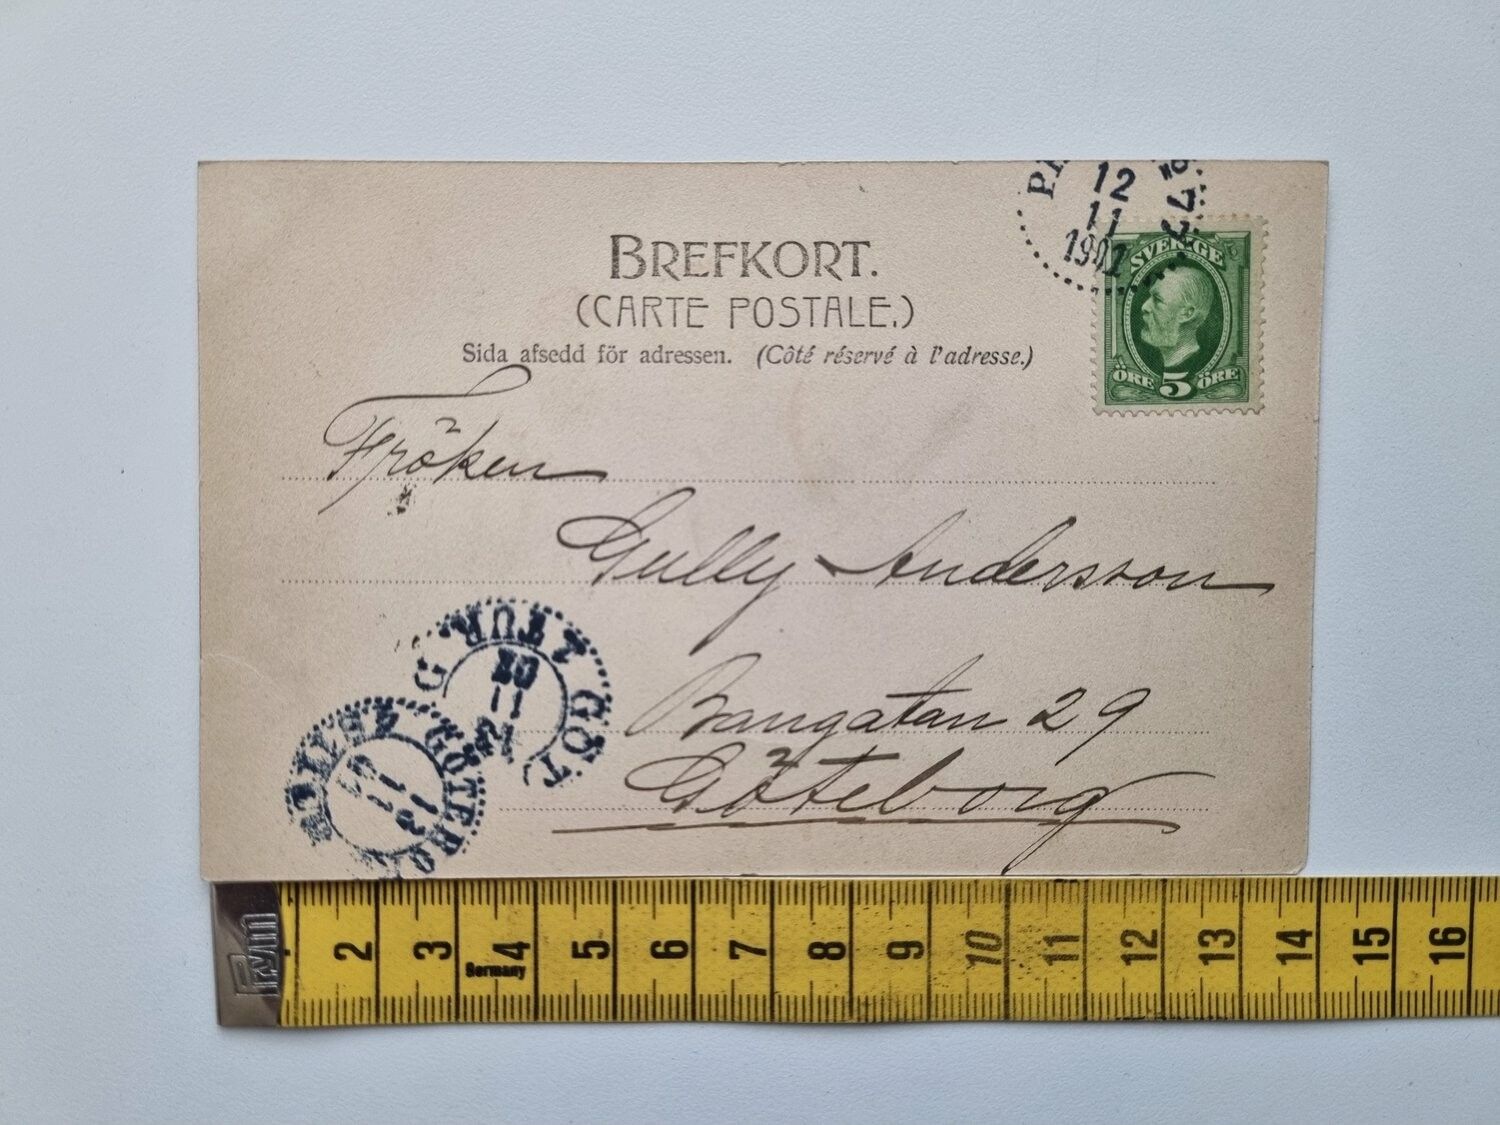 12
11
1901
SVERIGE
ÖRE 5 ÖRE
BREFKORT.
(CARTE POSTALE.)
Sida afsedd för adressen. (Côté réservé à l'adresse.)
Fröken
Gully Andersson
Bangatan 29
Göteborg
2 TUR. GÖT
11
GÖTEBORG
13
11
Prym
2 3 4 5 6 7 8 9 10 11 12 13 14 15 16
Germany